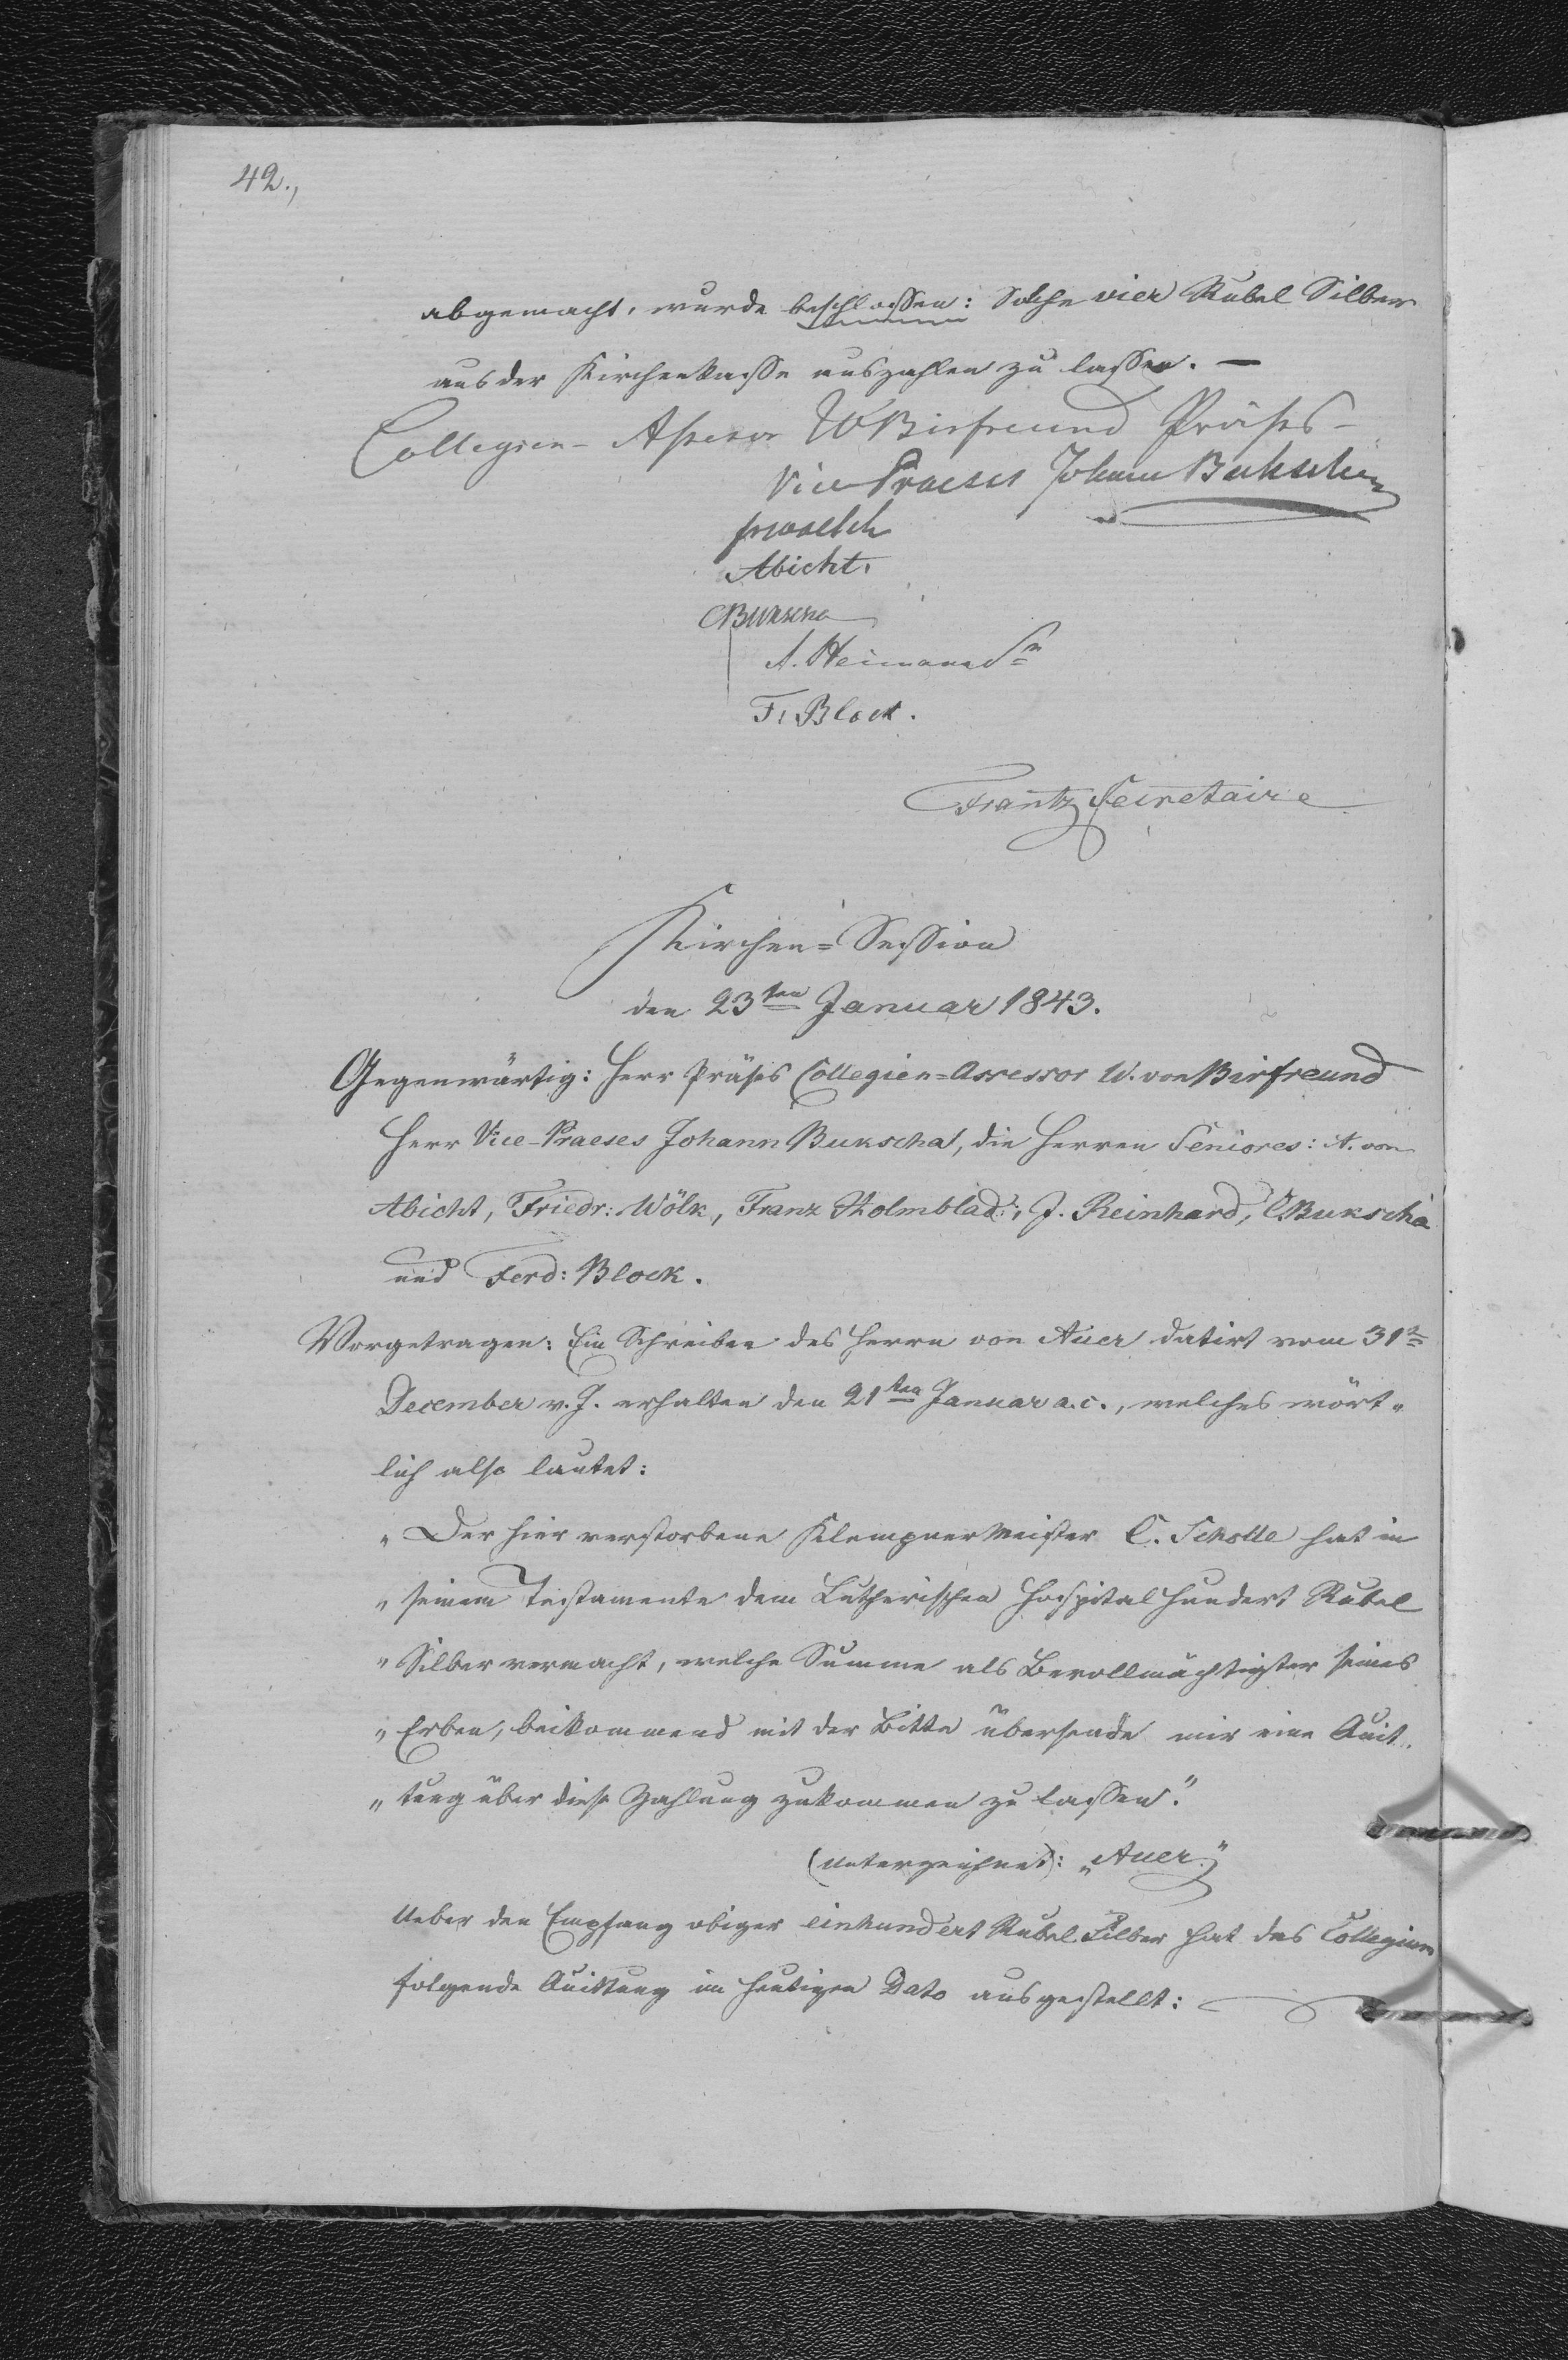 42.,
abgemacht, wurde beschlossen: Solche vier Rubel Silber
aus der Kirchenkasse auszahlen zu lassen. —
Collegien-Assessor W Birfreund Präses-
Vice Praeses Johann Bukscha
Abicht.
CBukscha
A. Heimann Sn
F. Block.
Frantz Secretaire
Kirchen=Session
den 23ten Januar 1843.
Gegenwärtig: Herr Präses Collegien=Assessor W. von Birfreund
Herr Vice-Praeses Johann Bukscha, die Herren Seniores: A. von
Abicht, Friedr: Wölk, Franz Holmblad, J. Reinhard, CBukscha
und Ferd: Block.
Vorgetragen: Ein Schreiben des Herrn von Auer datirt vom 31n
December v. J. erhalten den 21ten Januar a. c., welches wört-
lich also lautet:
„Der hier verstorbene Klempner Meister C. Scholle hat in
„seinem Testamente dem Lutherischen Hospital hundert Rubel
„Silber vermacht, welche Summe als Bevollmächtigter seines
„Erben, beikommend mit der Bitte übersende mir eine Quit-
„tung über diese Zahlung zukommen zu lassen."
(unterzeichnet): „Auer."
Ueber den Empfang obiger einhundert Rubel Silber hat das Collegium
folgende Quittung im heutigen Dato ausgestellt: